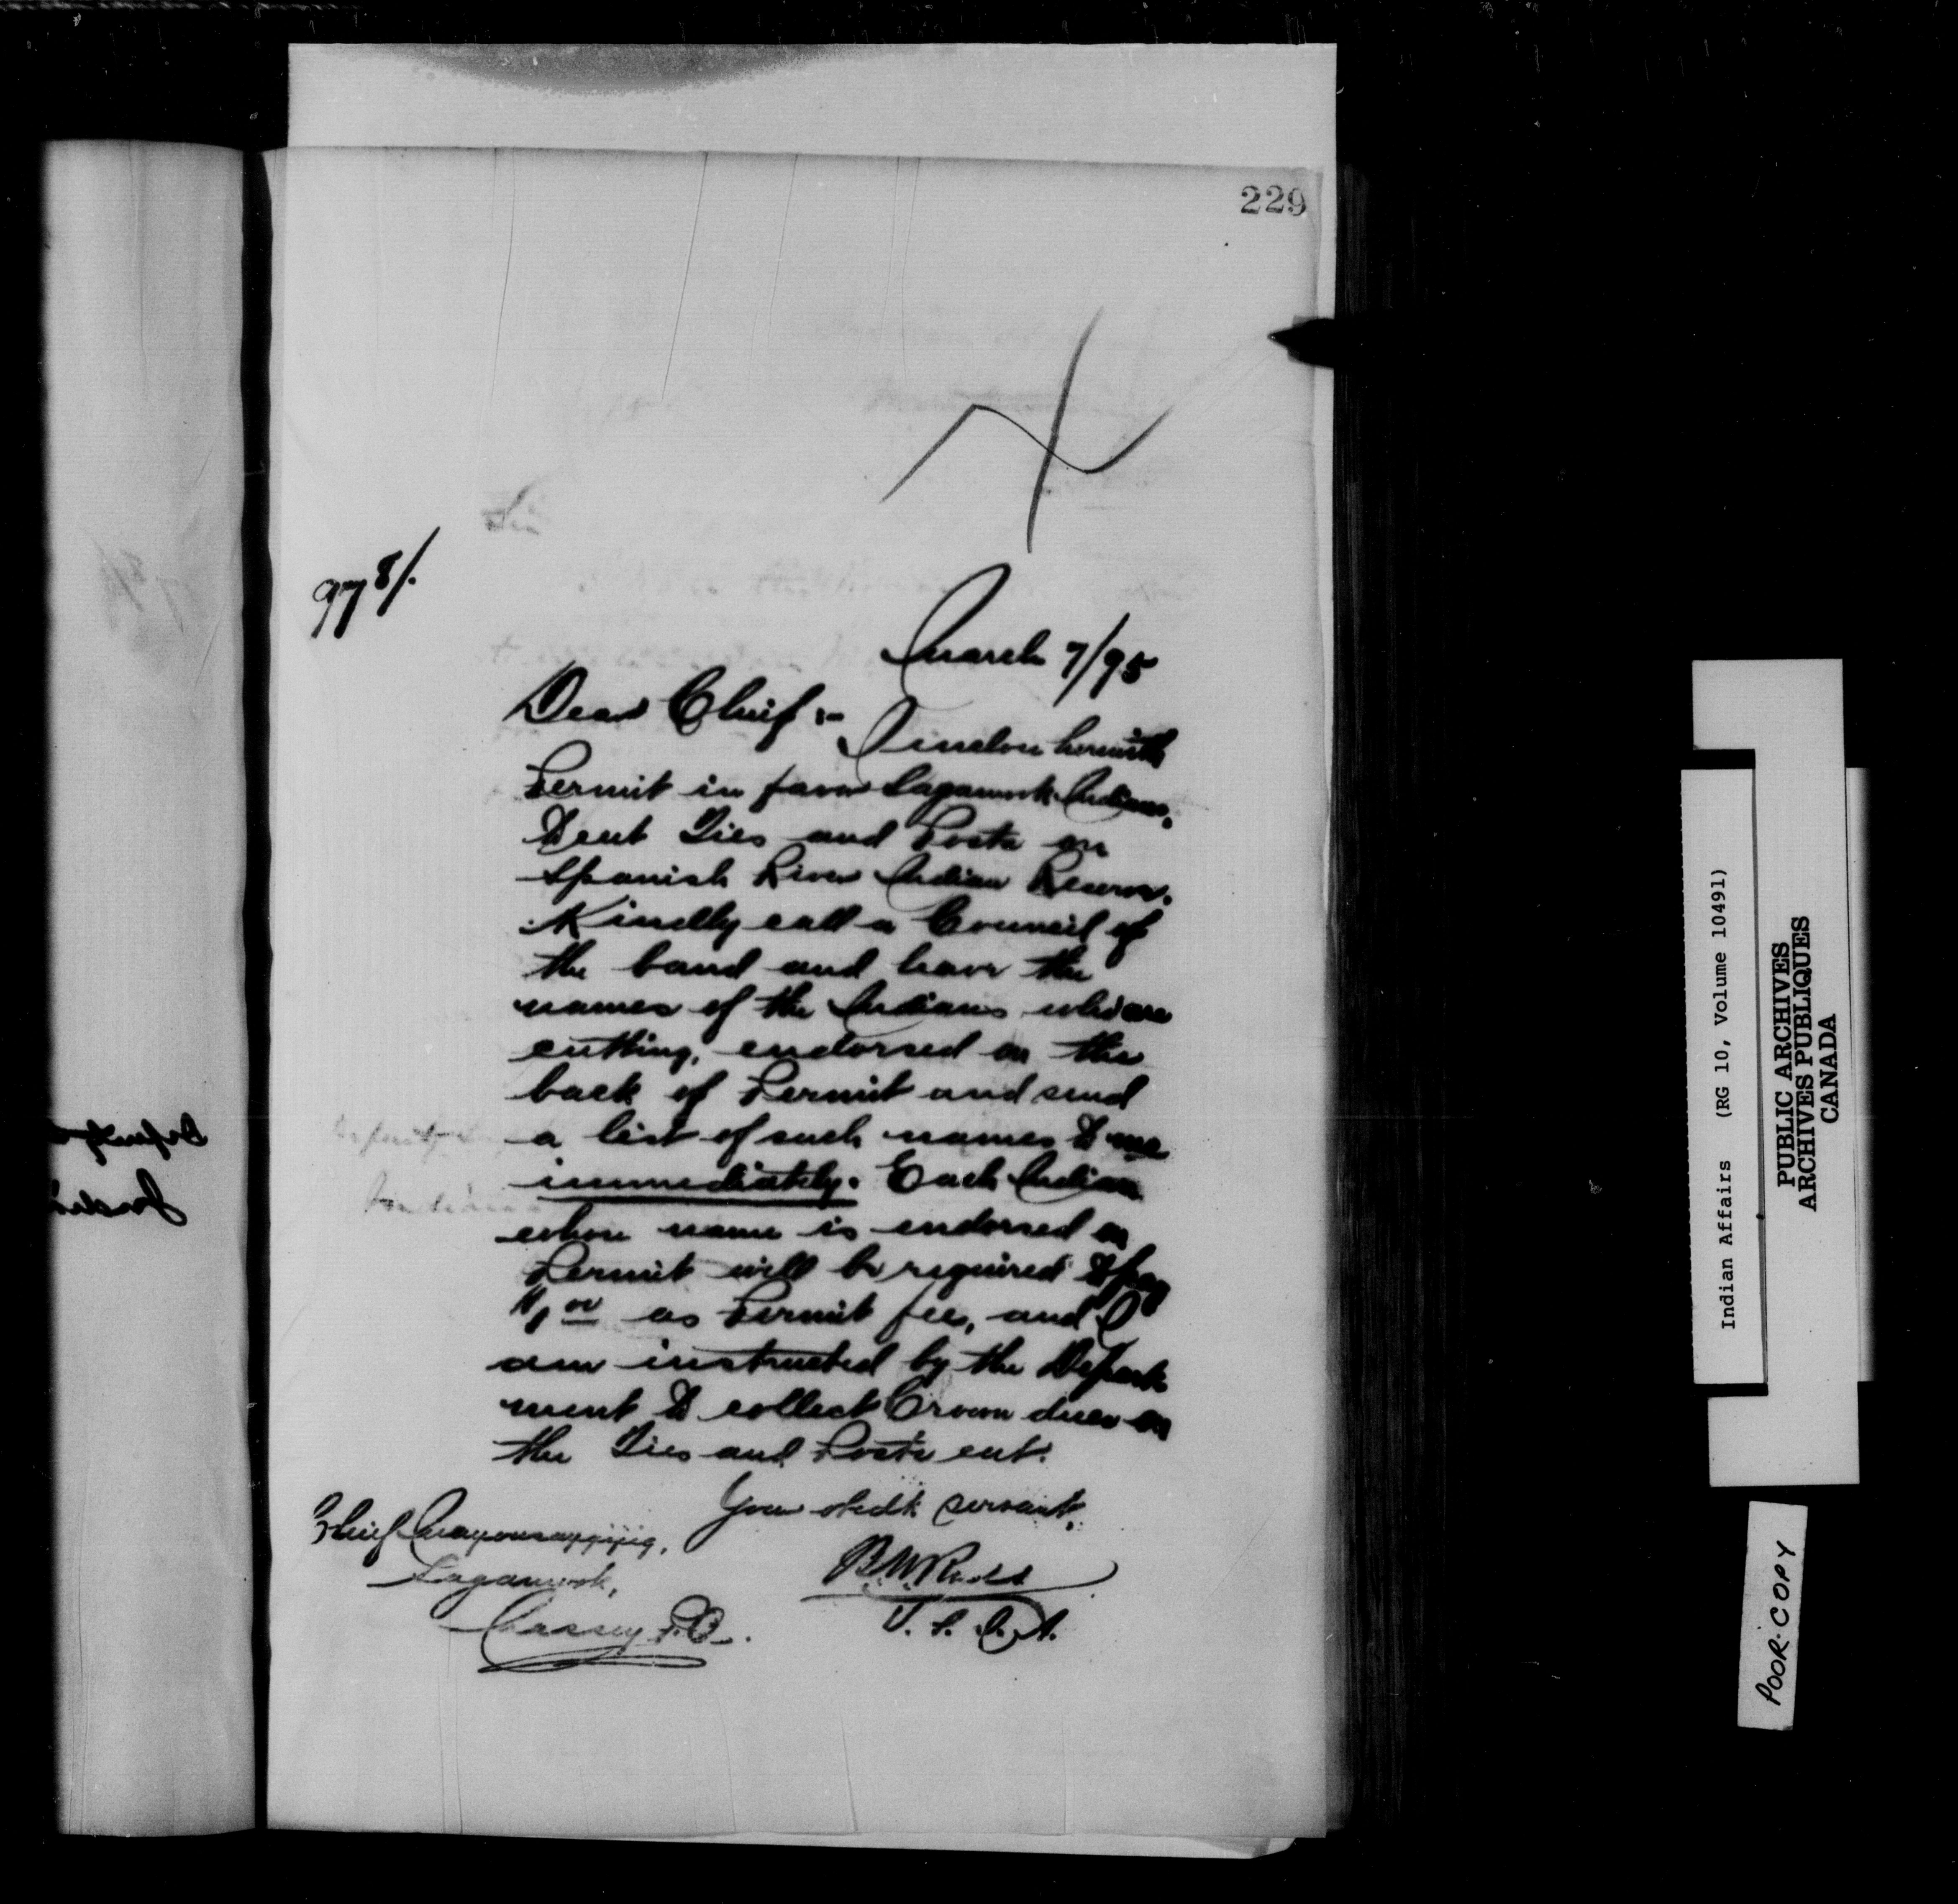 229
97 8/.
March 7/95
Dear Chief :-
I enclose herewith
Permit in favor Sagamook Indians,
to cut Ties and Posts on
Spanish River Indian Reserve.
Kindly call a Council of
the band and have the
names of the Indians who are
cutting, endorsed on the
back of Permit and send
a list of such names to me
immediately. Each Indian
whose name is endorsed on
Permit will be required to pay
$1.00 as Permit fee, and I
am instructed by the Depart
ment to collect Crown dues on
the Ties and Posts cut.
Your obedt servant,
B W Ross
I. S. I. A.
Chief
Sagamook,
Massey P.O.
Indian Affairs (RG 10, Volume 10491)
PUBLIC ARCHIVES
ARCHIVES PUBLIQUES
CANADA
POOR COPY